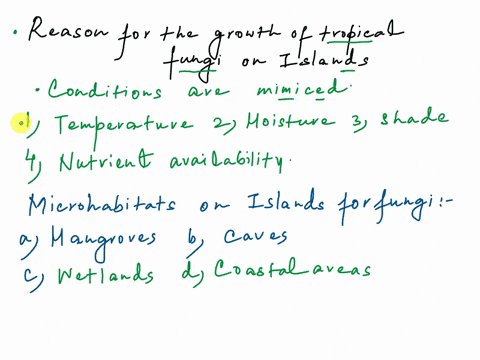 • Reason for the growth of tropical
fungi on Islands
• Conditions are mimiced.
1, Temperature 2, Moisture 3, shade
4, Nutrient availability.
Microhabitats on Islands for fungi :-
a, Mangroves b, Caves
c, Wetlands d, Coastal areas